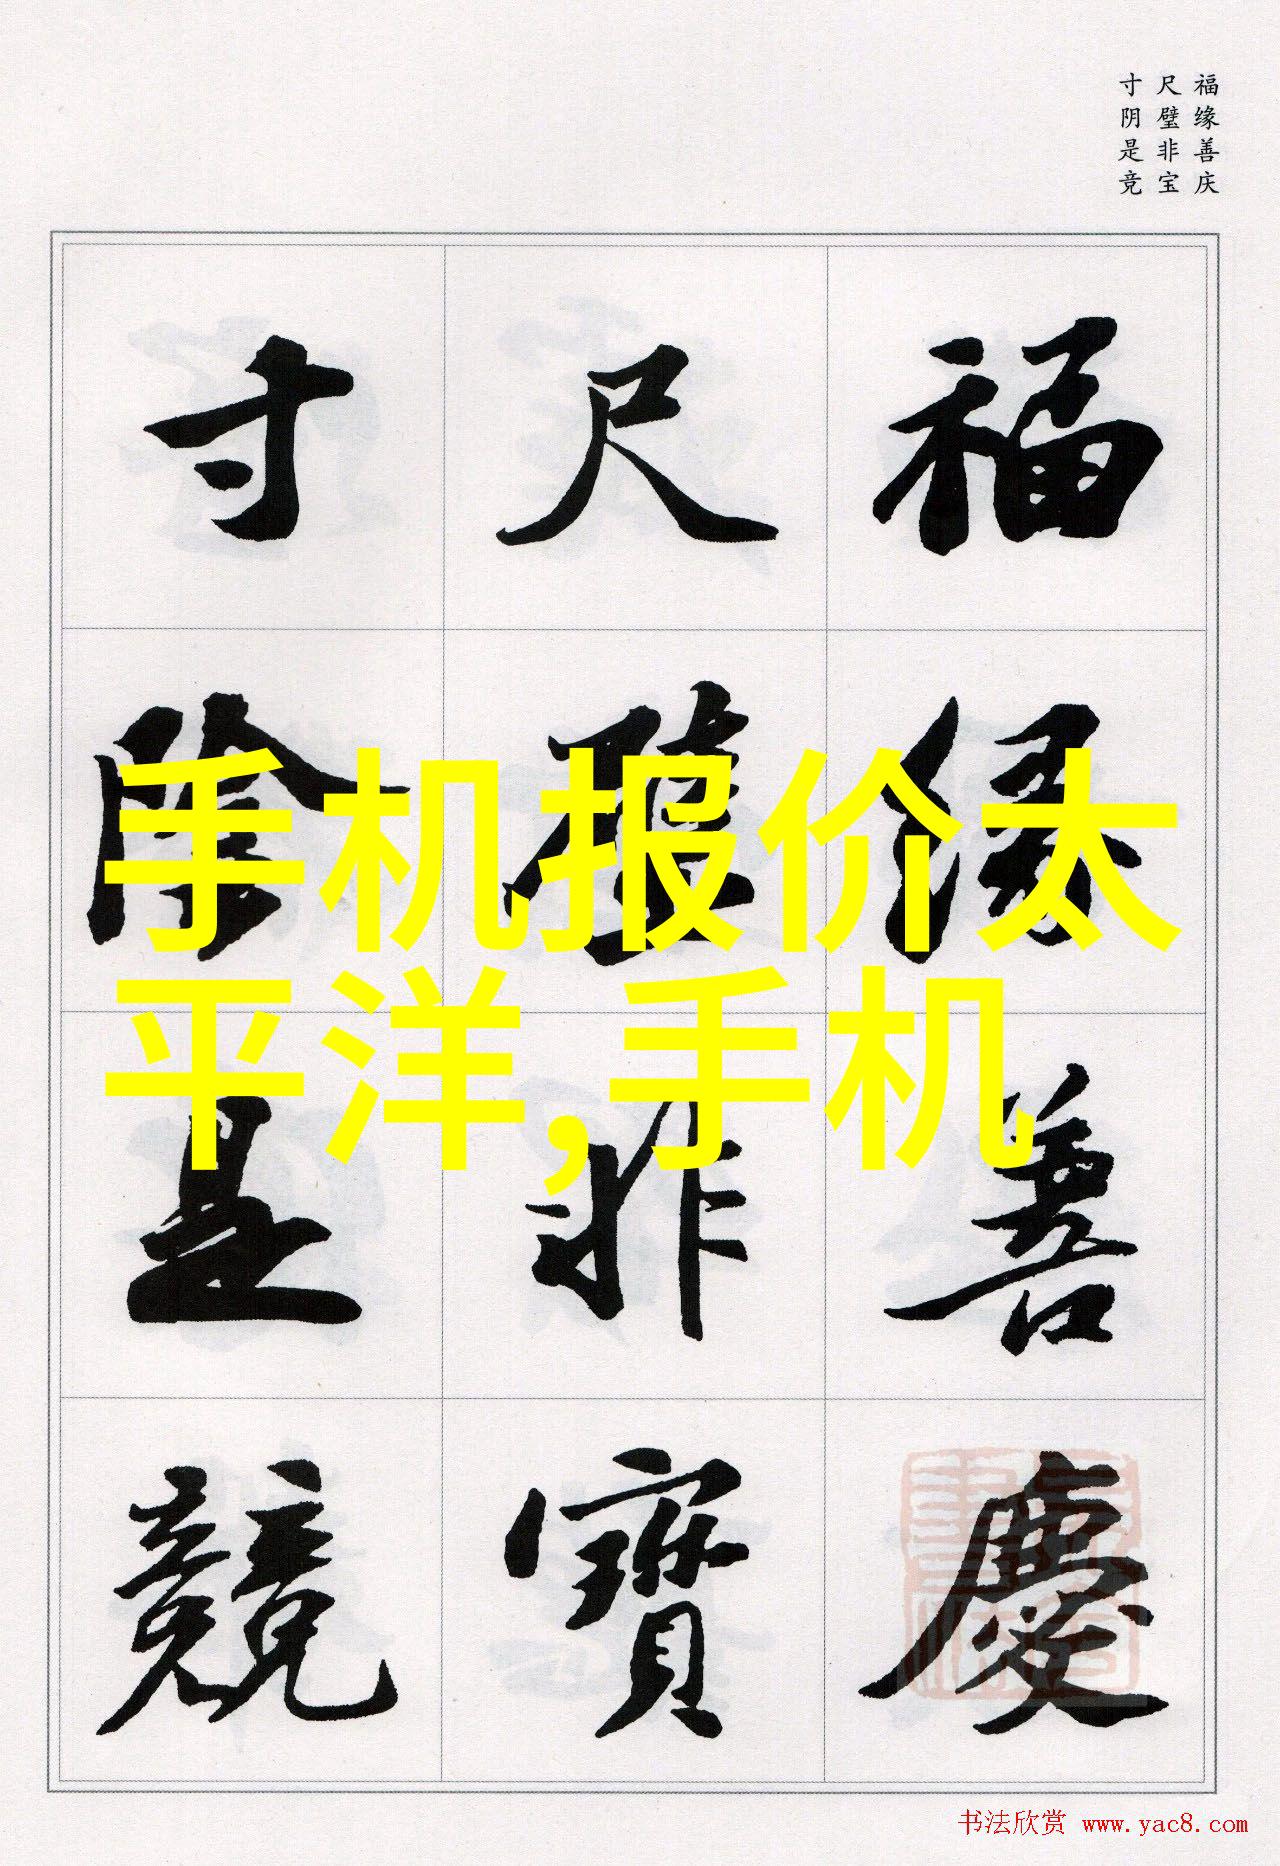 福缘善庆
尺璧非宝
寸阴是竞
福缘善慶
尺璧非寶
寸陰是競
手机报价太
平洋,手机
书法欣赏 www.yac8.com